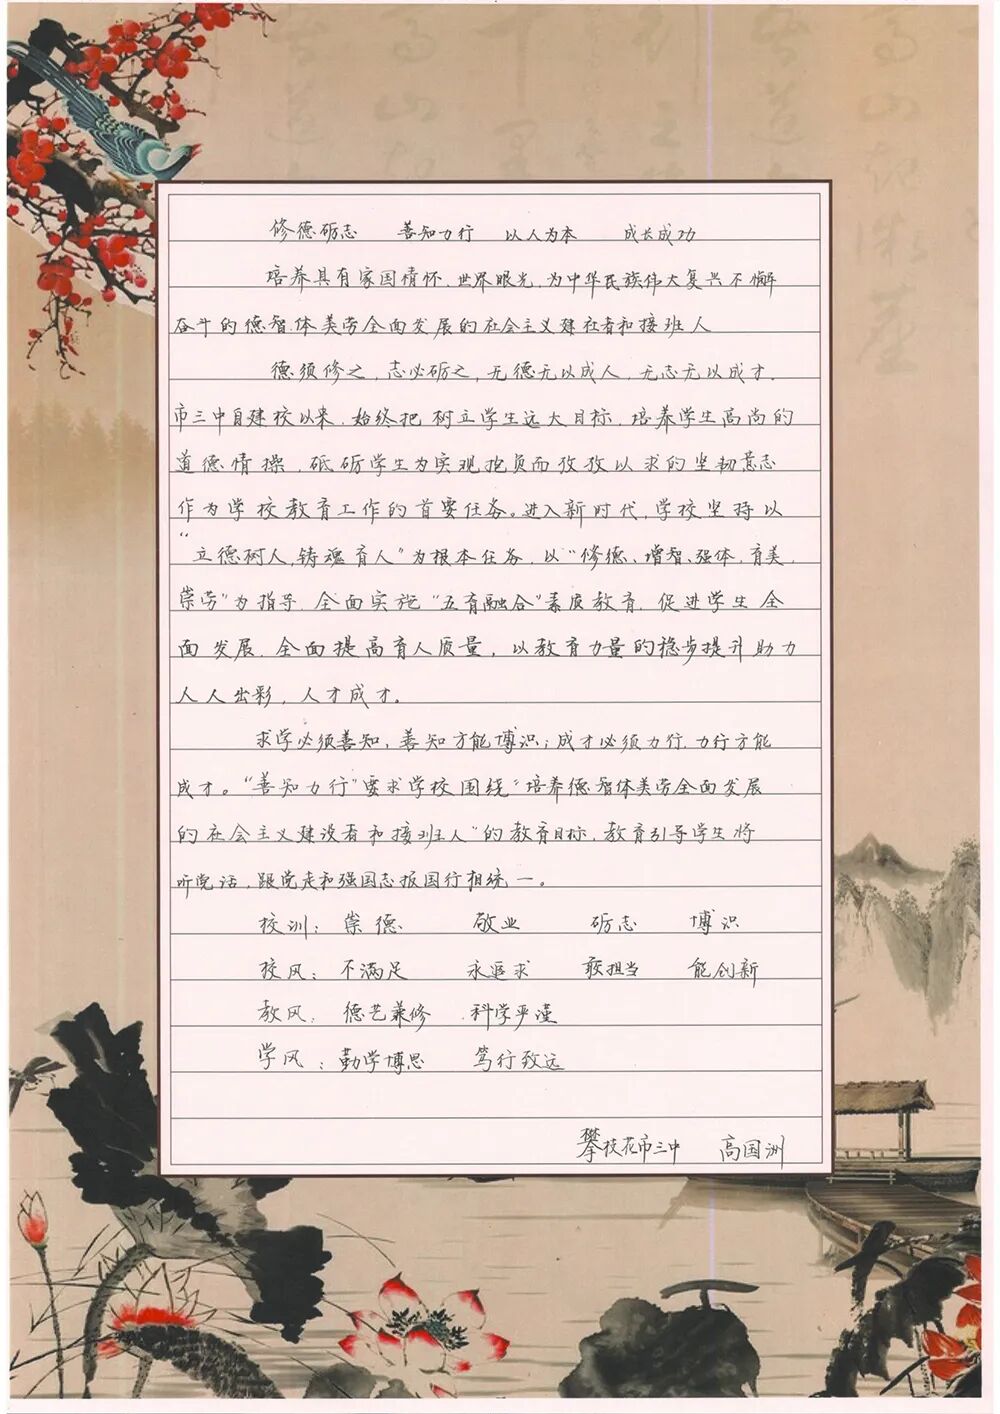 修德砺志 善知力行 以人为本 成长成功
培养具有家国情怀、世界眼光,为中华民族伟大复兴不懈
奋斗的德智体美劳全面发展的社会主义建设者和接班人
德须修之,志必砺之,无德无以成人,无志无以成才.
市三中自建校以来,始终把树立学生远大目标,培养学生高尚的
道德情操,砥砺学生为实现抱负而孜孜以求的坚韧意志
作为学校教育工作的首要任务。进入新时代,学校坚持以
“立德树人,铸魂育人”为根本任务,以“修德、增智、强体、育美、
崇劳”为指导,全面实施“五育融合”素质教育,促进学生全
面发展,全面提高育人质量,以教育力量的稳步提升助力
人人出彩,人才成才。
求学必须善知,善知才能博识;成才必须力行,力行方能
成才。“善知力行”要求学校围绕“培养德智体美劳全面发展
的社会主义建设者和接班人”的教育目标,教育引导学生将
听党话,跟党走和强国志报国行相统一。
校训:崇德 敬业 砺志 博识
校风:不满足 永追求 敢担当 能创新
教风:德艺兼修 科学严谨
学风:勤学博思 笃行致远
攀枝花市三中 高国洲